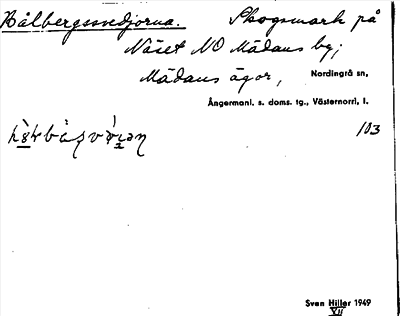 Bålbergssvedjorna. Skogsmark på
Näset NO Mädans by;
Mädans ägor, Nordingrå sn,
Ångermanl. s. doms. tg., Västernorrl, l.
103
Sven Hiller 1949
XII